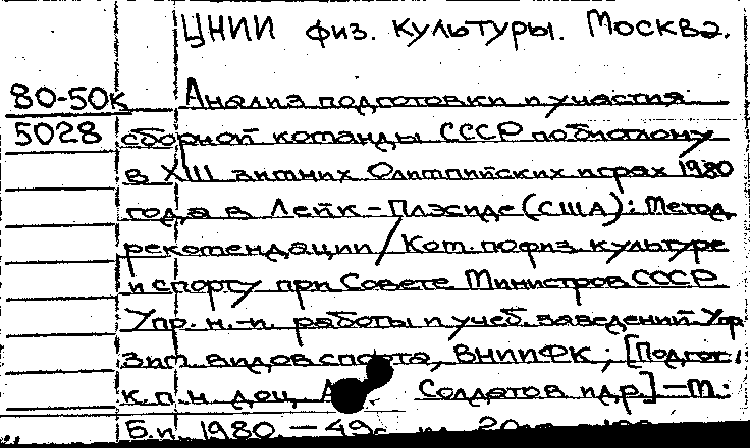 ЦНИИ физ. культуры. Москва.
80-50к Анализ подготовки и участия
5028 сборной команды СССР по биатлону
в XIII зимних Олимпийских играх 1980
года в Лейк-Плэсиде (США): Метод.
рекомендации / Ком. по физ. культуре
и спорту при Совете Министров СССР
Упр. н.-и. работы и учеб. заведений. Упр
зим. видов спорта, ВНИИФК; [Подгот.
к.п.н. доц. Солдатов и др.] — М.:
Б.и. 1980. — 49с